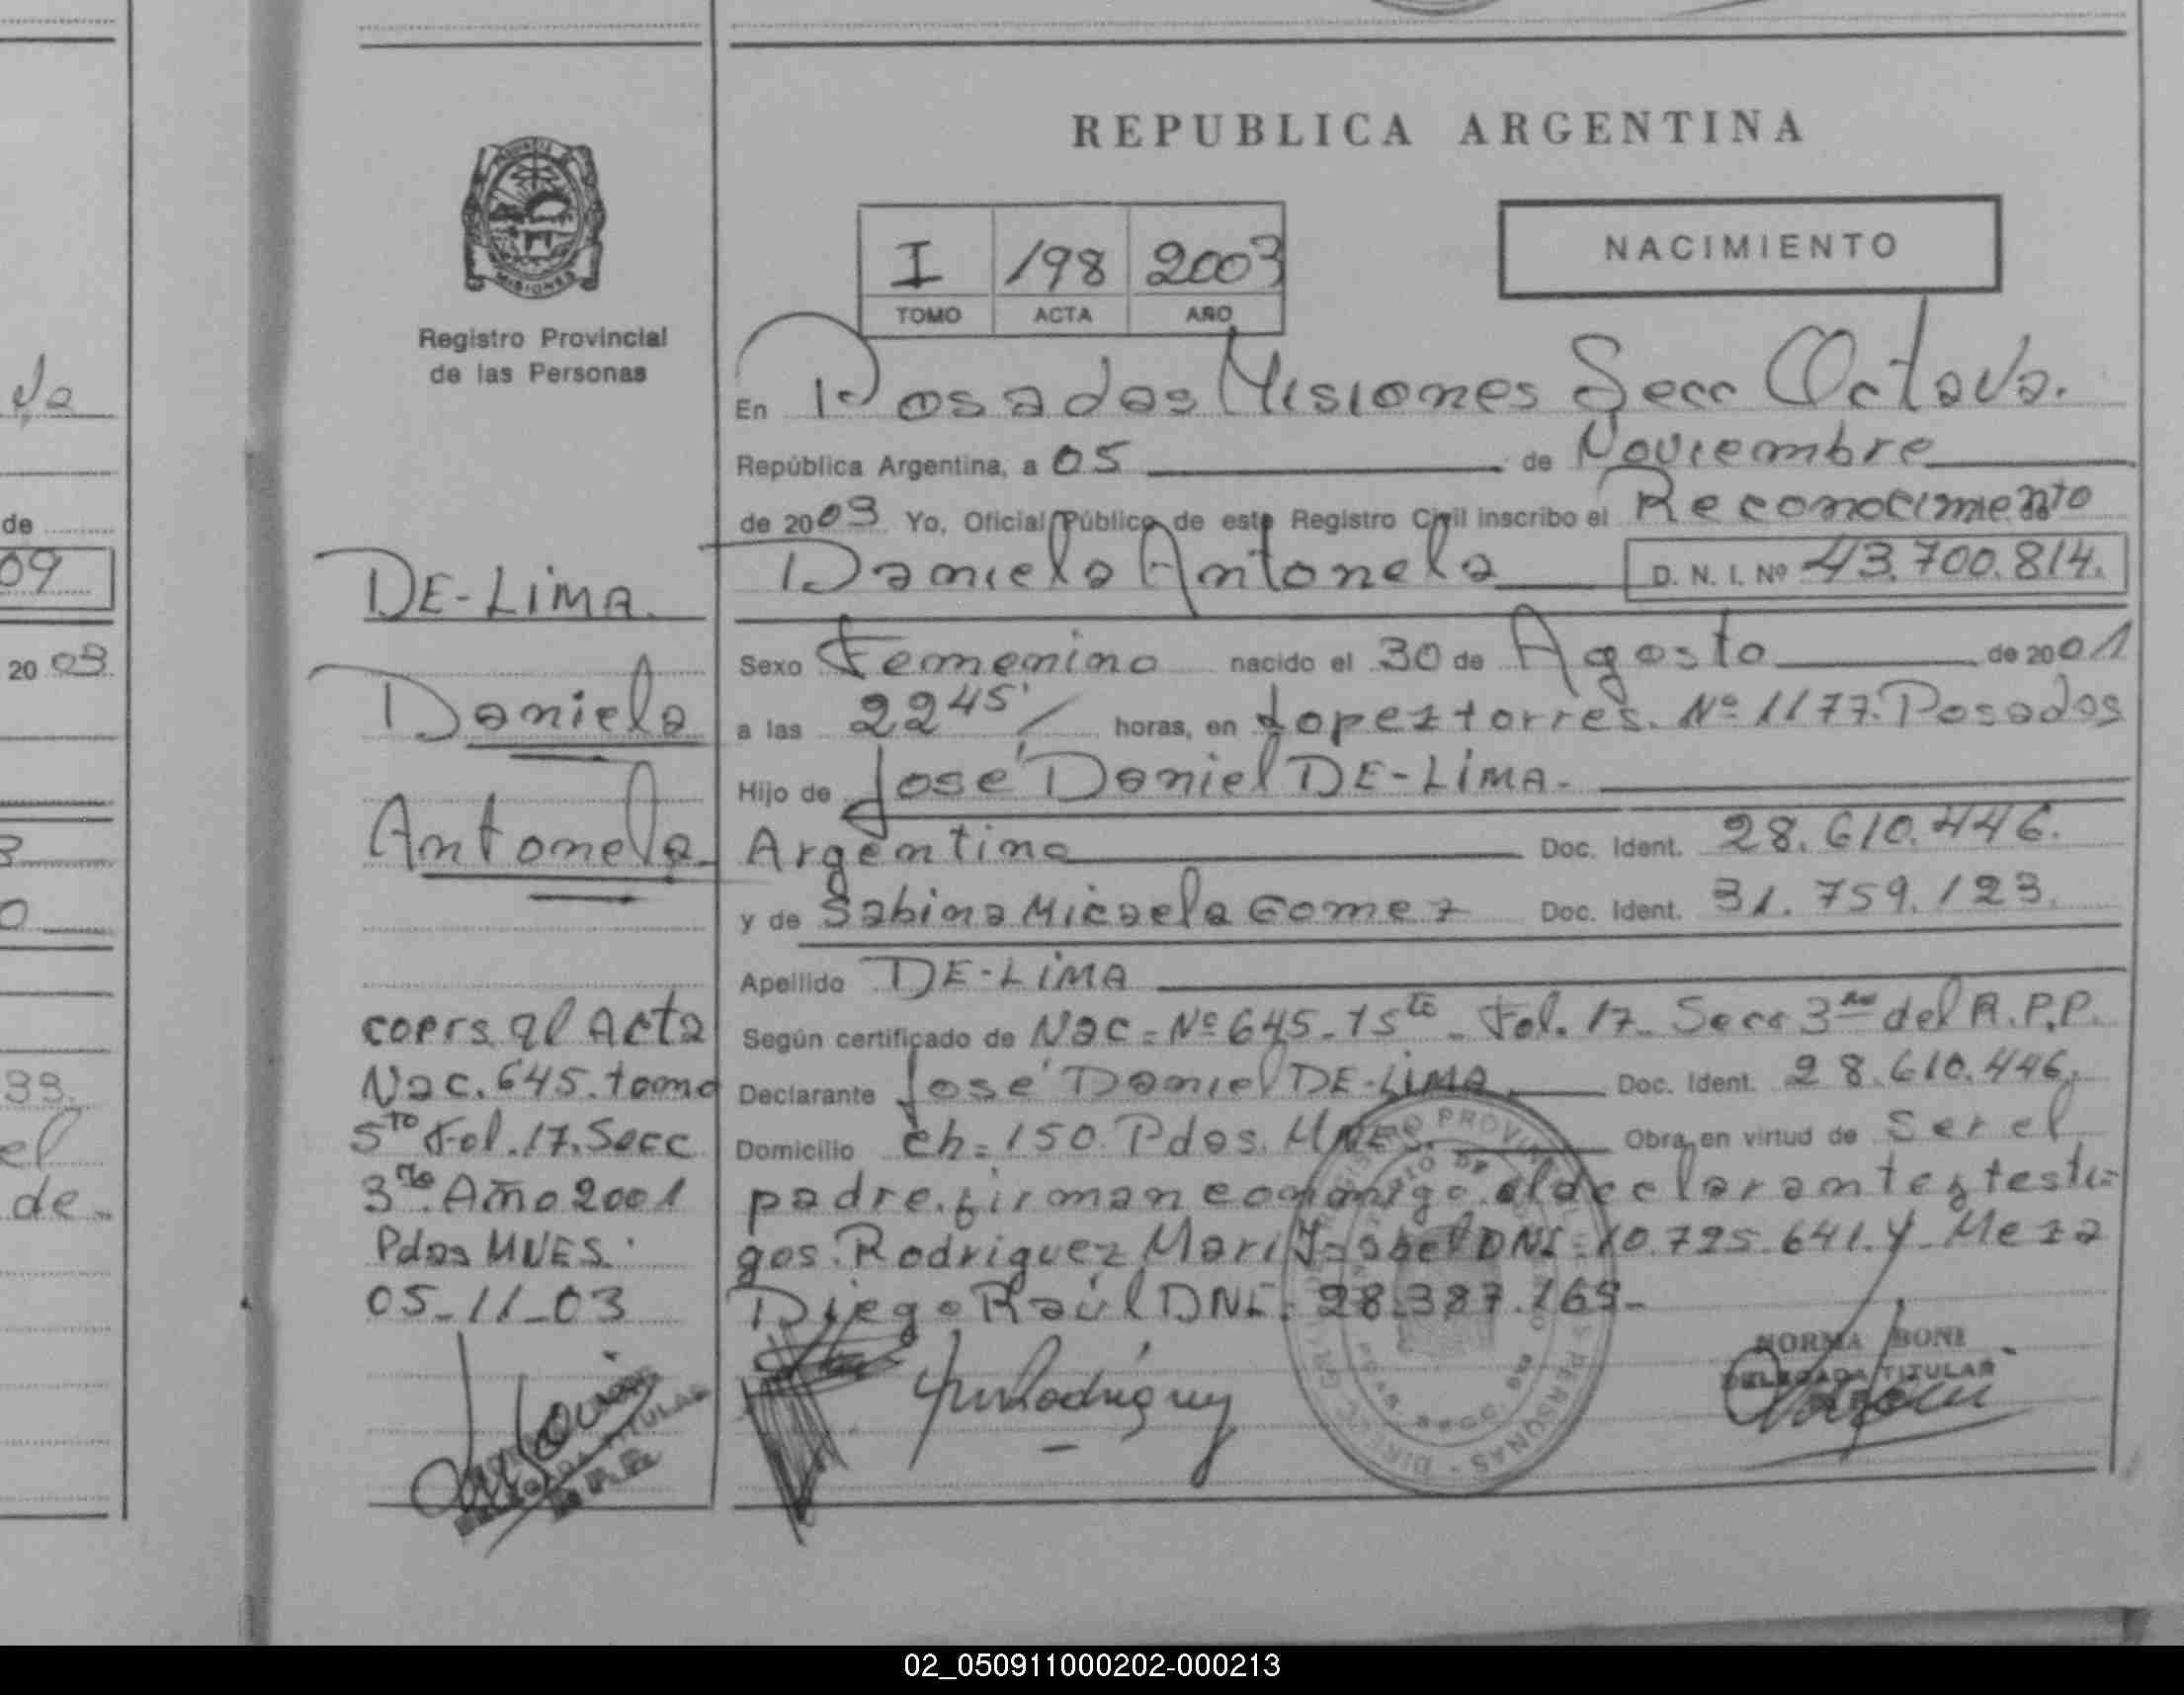 REPUBLICA ARGENTINA
NACIMIENTO
I 198 2003
TOMO ACTA AÑO
MISIONES
Registro Provincial
de las Personas
En Posadas Misiones Secc Octava.
República Argentina, a 05 de Noviembre
de 2003 Yo, Oficial Público de este Registro Civil inscribo el Reconocimiento
Daniela Antonela D. N. I. Nº 43.700.814.
Sexo Femenino nacido el 30 de Agosto de 2001
a las 22 45' horas, en Lopez torres. Nº 1177. Posadas
Hijo de José Daniel DE-LiMA.
Argentino Doc. Ident. 28.610.446.
y de Sabina Micaela Gomez Doc. Ident. 31.759.123.
Apellido DE-LiMA
Según certificado de Nac= Nº 645-T5to- Fol. 17- Secc 3ra del R.P.P.
Declarante José Daniel DE-LiMA. Doc. Ident. 28.610.446.
Domicilio Ch=150. Pdas. MNES. Obra en virtud de Ser el
padre. firman conmigo el declarante y testi=
gos. Rodriguez Mari Isabel DNI=10.725.641. y Meza
Diego Raúl DNI. 28.387.169-
NORMA BONI
DELEGADA TITULAR
DE-LiMA.
Daniela
Antonela
corrs. al Acta
Nac. 645. tomo
5to Fol. 17. Secc
3ra. Año 2001
Pdas MNES.
05-11-03
de
09
20 03
3
0
33.
el
de-
02_050911000202-000213